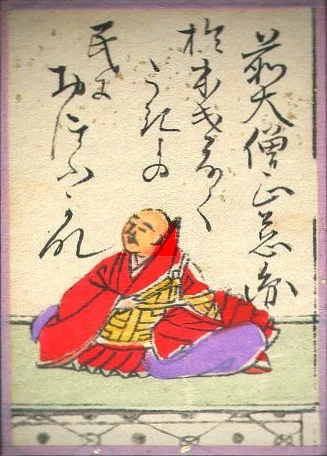 前大僧正慈円
おほけなく
うきよの
民に
おほふかな